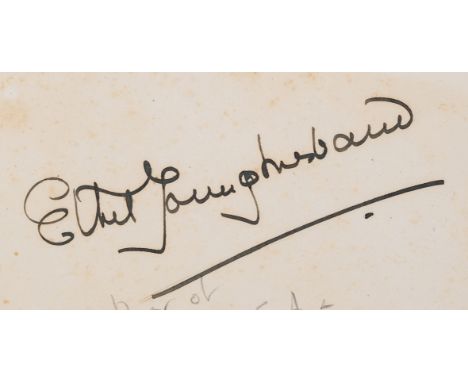 Ethel Younghusband